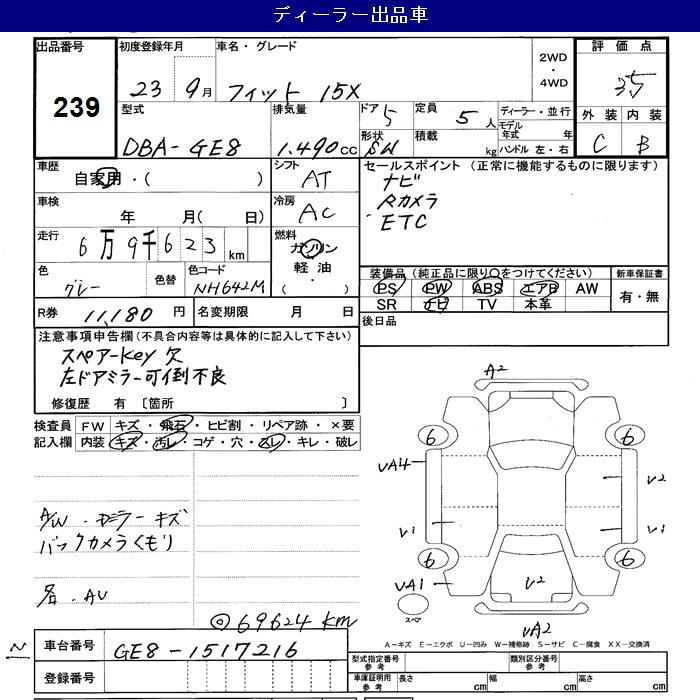 ディーラー出品車
出品番号
239
初度登録年月
23 9月
車名・グレード
フィット 15X
2WD
・
4WD
評価点
3.5
外装 内装
C B
型式
DBA-GE8
排気量
1.490cc
ドア 5
形状 SW
定員 5人
積載 kg
ディーラー・並行
モデル年式 年
ハンドル 左・右
車歴
自家用・( )
シフト
AT
セールスポイント (正常に機能するものに限ります)
ナビ
Rカメラ
ETC
車検
年 月( 日)
冷房
AC
走行
6万9千623km
燃料
ガソリン
軽油
・( )
色
グレー
色替
色コード
NH642M
装備品 (純正品に限り○をつけてください)
PS PW ABS エアB AW
SR ナビ TV 本革
新車保証書
有・無
R券 11,180円
名変期限 月 日
後日品
注意事項申告欄(不具合内容等は具体的に記入して下さい)
スペアーKey欠
左ドアミラー可倒不良
修復歴 有〔箇所 〕
検査員記入欄
FW キズ・飛石・ヒビ割・リペア跡・×要
内装 キズ・汚レ・コゲ・穴・スレ・キレ・破レ
A/W・ドミラーキズ
バックカメラくもり
各・AU
◎69624km
A2
6 6
VA14 V2
V1 V1
6 6
VA1 V2
スペア
VA2
A-キズ E-エクボ U-凹み W-補修跡 S-サビ C-腐食 XX-交換済
N
車台番号 GE8-1517216
登録番号
型式指定番号 参考
類別区分番号 参考
車庫証明用 参考
長さ cm 幅 cm 高さ cm